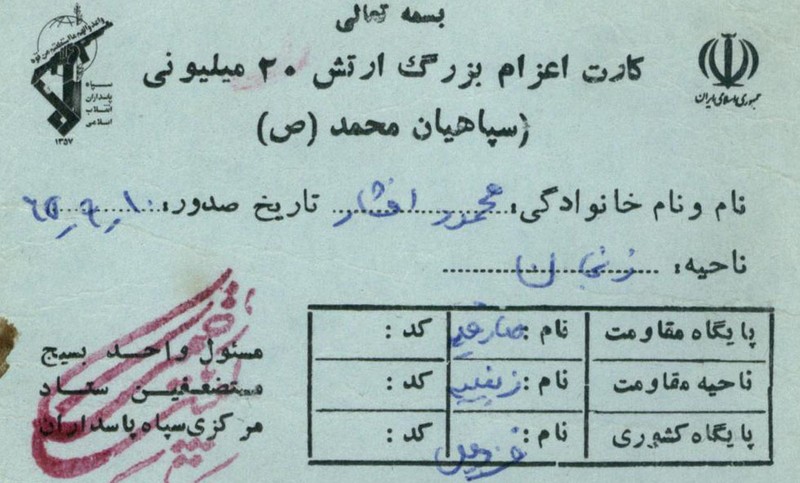 بسمه تعالی
کارت اعزام بزرگ ارتش ۲۰ میلیونی
(سپاهیان محمد (ص)
جمهوری اسلامی ایران
سپاه
پاسداران
انقلاب
اسلامی
۱۳۵۷
نام و نام خانوادگی: محمود افشار تاریخ صدور: ۶۵٫۹٫۱۰
ناحیه: زنجان
پایگاه مقاومت نام: کد:
ناحیه مقاومت نام: زینبیه کد:
پایگاه کشوری نام: کد:
مسئول واحد بسیج
مستضعفین ستاد
مرکزی سپاه پاسداران